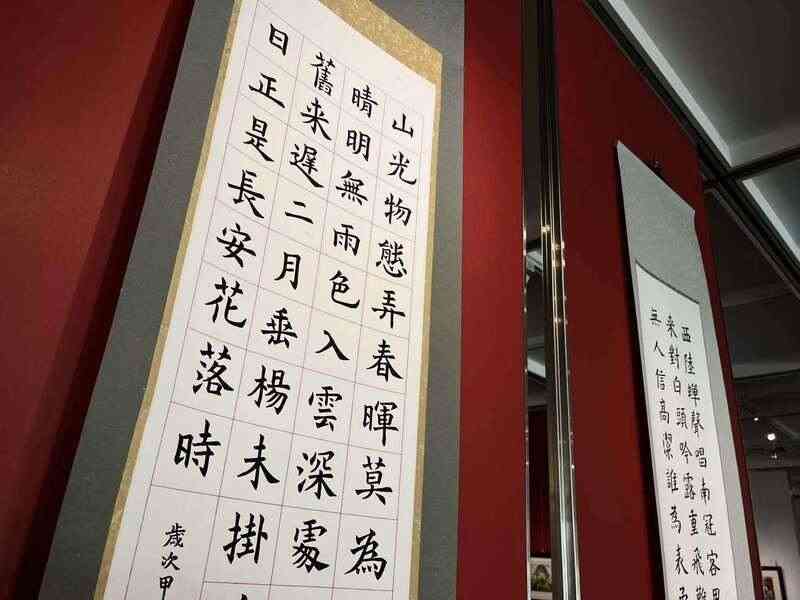 山光物態弄春暉莫為
晴明無雨色入雲深處
舊来遲二月垂楊未掛
日正是長安花落時
歲次甲
西陸蟬聲唱南冠客
来對白頭吟露重飛難
無人信高潔誰為表